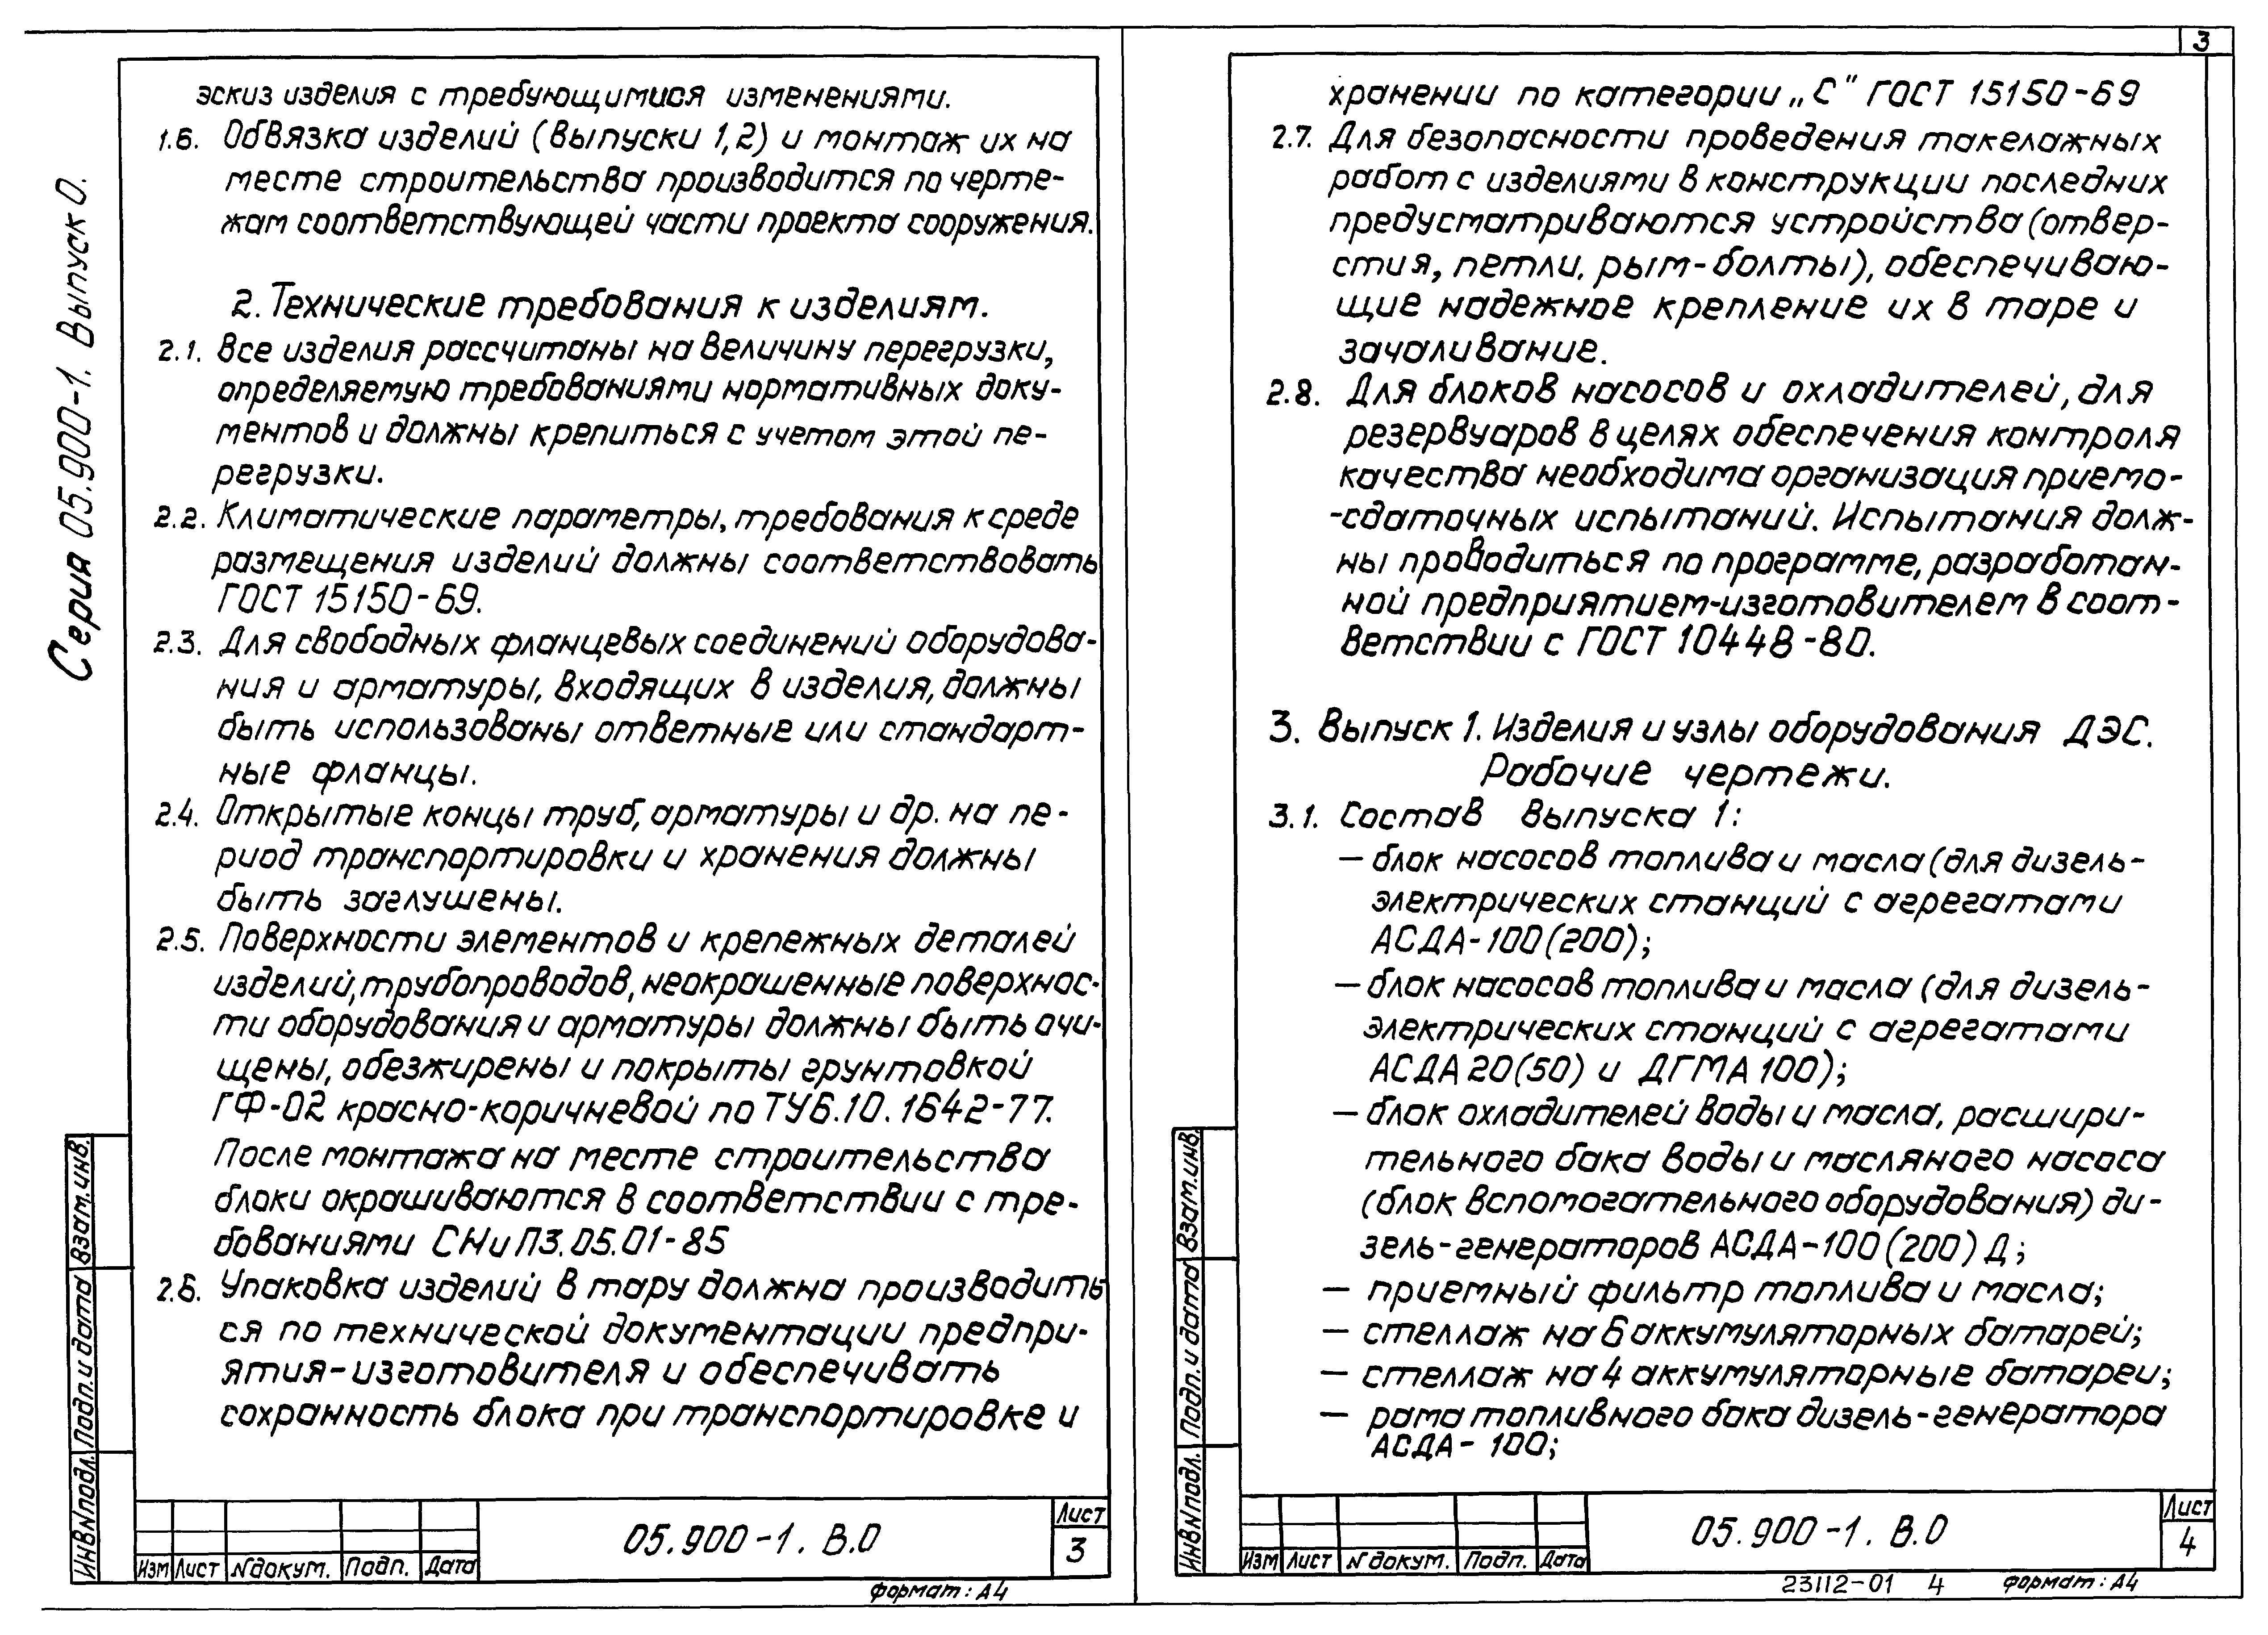 3
Серия 05.900-1. Выпуск 0.
эскиз изделия с требующимися изменениями.
1.6. Обвязка изделий (Выпуски 1,2) и монтаж их на
месте строительства производится по черте-
жам соответствующей части проекта сооружения.
2. Технические требования к изделиям.
2.1. Все изделия рассчитаны на величину перегрузки,
определяемую требованиями нормативных доку-
ментов и должны крепиться с учетом этой пе-
регрузки.
2.2. Климатические параметры, требования к среде
размещения изделий должны соответствовать
ГОСТ 15150-69.
2.3. Для свободных фланцевых соединений оборудова-
ния и арматуры, входящих в изделия, должны
быть использованы ответные или стандарт-
ные фланцы.
2.4. Открытые концы труб, арматуры и др. на пе-
риод транспортировки и хранения должны
быть заглушены.
2.5. Поверхности элементов и крепежных деталей
изделий, трубопроводов, неокрашенные поверхнос-
ти оборудования и арматуры должны быть очи-
щены, обезжирены и покрыты грунтовкой
ГФ-02 красно-коричневой по ТУ6.10.1642-77.
После монтажа на месте строительства
блоки окрашиваются в соответствии с тре-
бованиями СНиП3.05.01-85
2.6. Упаковка изделий в тару должна производить
ся по технической документации предпри-
ятия-изготовителя и обеспечивать
сохранность блока при транспортировке и
Взам.инв.
Подп.и дата
Инв№подл.
Изм Лист №докум. Подп. Дата
05.900-1. В.0
Лист
3
формат: А4
хранении по категории „С" ГОСТ 15150-69
2.7. Для безопасности проведения такелажных
работ с изделиями в конструкции последних
предусматриваются устройства (отвер-
стия, петли, рым-болты), обеспечиваю-
щие надежное крепление их в таре и
зачаливание.
2.8. Для блоков насосов и охладителей, для
резервуаров в целях обеспечения контроля
качества необходима организация приемо-
-сдаточных испытаний. Испытания долж-
ны проводиться по программе, разработан-
ной предприятием-изготовителем в соот-
ветствии с ГОСТ 10448-80.
3. Выпуск 1. Изделия и узлы оборудования ДЭС.
Рабочие чертежи.
3.1. Состав Выпуска 1:
— блок насосов топлива и масла (для дизель-
электрических станций с агрегатами
АСДА-100(200);
— блок насосов топлива и масла (для дизель-
электрических станций с агрегатами
АСДА 20(50) и ДГМА 100);
— блок охладителей воды и масла, расшири-
тельного бака воды и масляного насоса
(блок вспомогательного оборудования) ди-
зель-генераторов АСДА-100(200)Д;
— приемный фильтр топлива и масла;
— стеллаж на 6 аккумуляторных батарей;
— стеллаж на 4 аккумуляторные батареи;
— рама топливного бака дизель-генератора
АСДА- 100;
Взам.инв.
Подп.и дата
Инв№подл.
Изм Лист №докум. Подп. Дата
05.900-1. В.0
Лист
4
23112-01 4 формат: А4